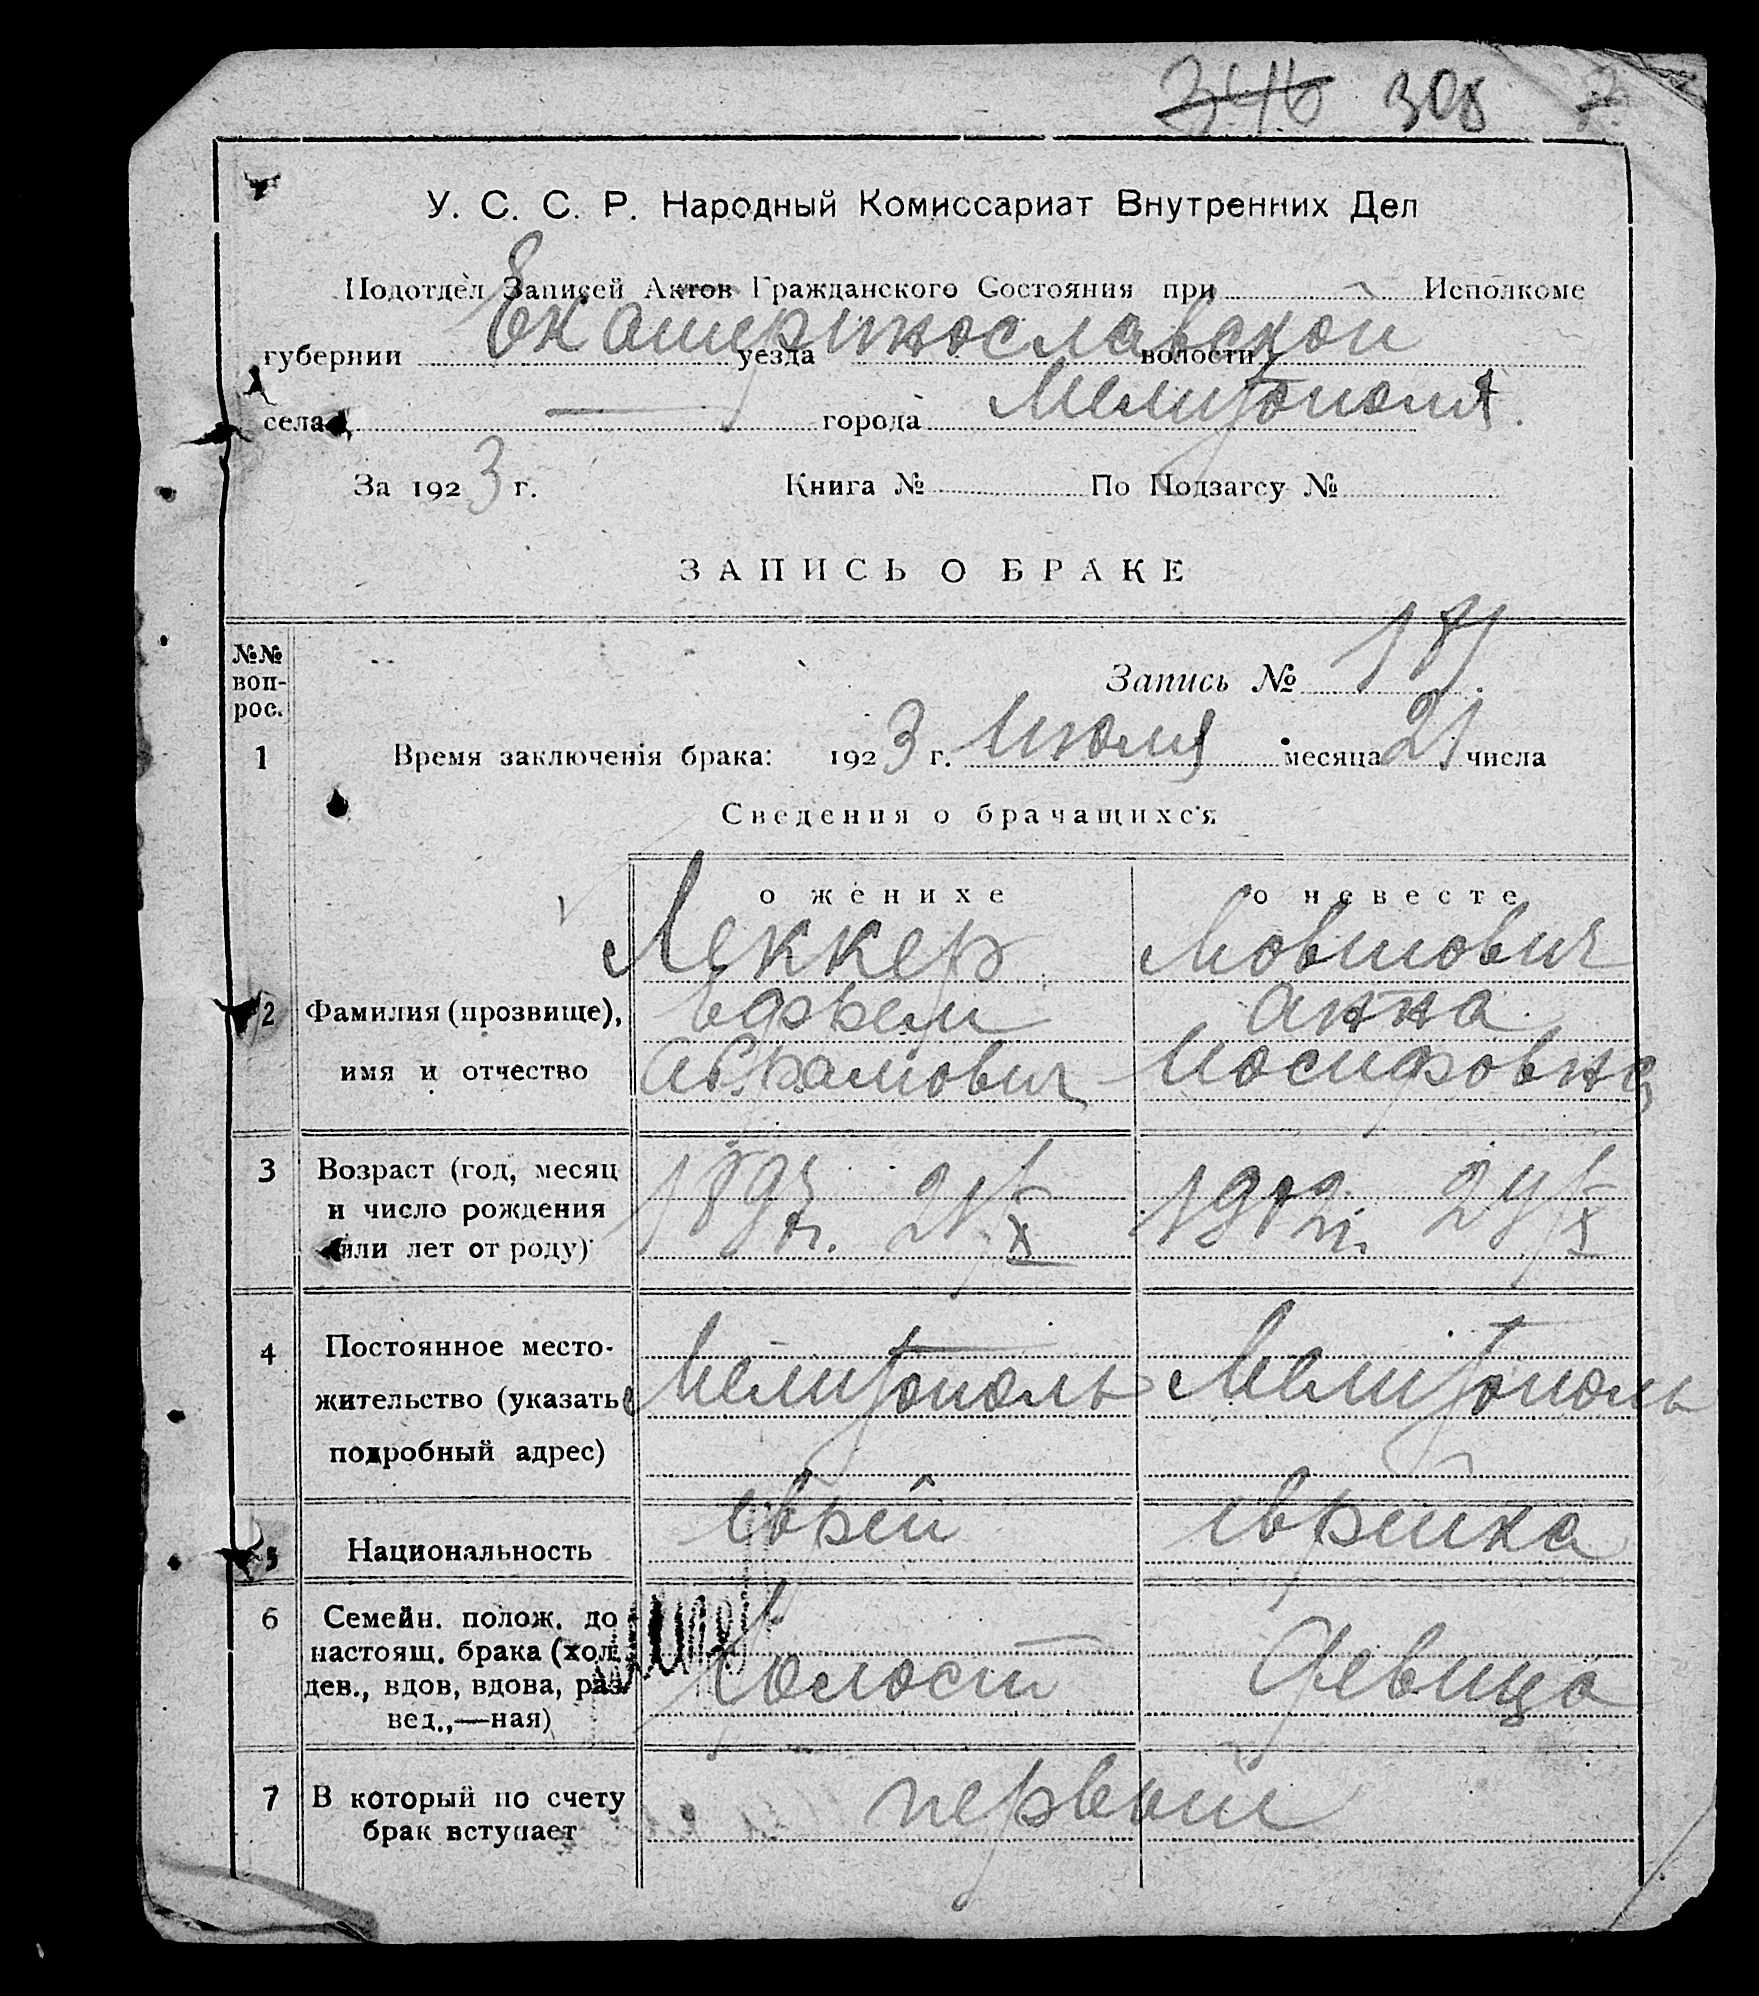 346 308
У. С. С. Р. Народный Комиссариат Внутренних Дел
Подотдел Записей Актов Гражданского Состояния при Исполкоме
губернии Екатеринославской уезда волости
села — города Мелитополя.
За 1923 г. Книга № По Подзагсу №
ЗАПИСЬ О БРАКЕ
№№ воп-
рос.
Запись № 181
1 Время заключенія брака: 1923 г. Июля месяца 21 числа
Сведения о брачащихся
о женихе о невесте
Леккер Мовшович
2 Фамилия (прозвище), Ефрем Анна
имя и отчество Абрамович Иосифовна
3 Возраст (год, месяц
и число рождения 1897г. 21/X 1902г. 29/X
или лет от роду)
4 Постоянное место-
жительство (указать Мелитополь Мелитополь
подробный адрес)
5 Национальность еврей еврейка
6 Семейн. полож. до
настоящ. брака (хол.,
дев., вдов, вдова, раз- Холост Девица
вед.,—ная)
7 В который по счету первый
брак вступает